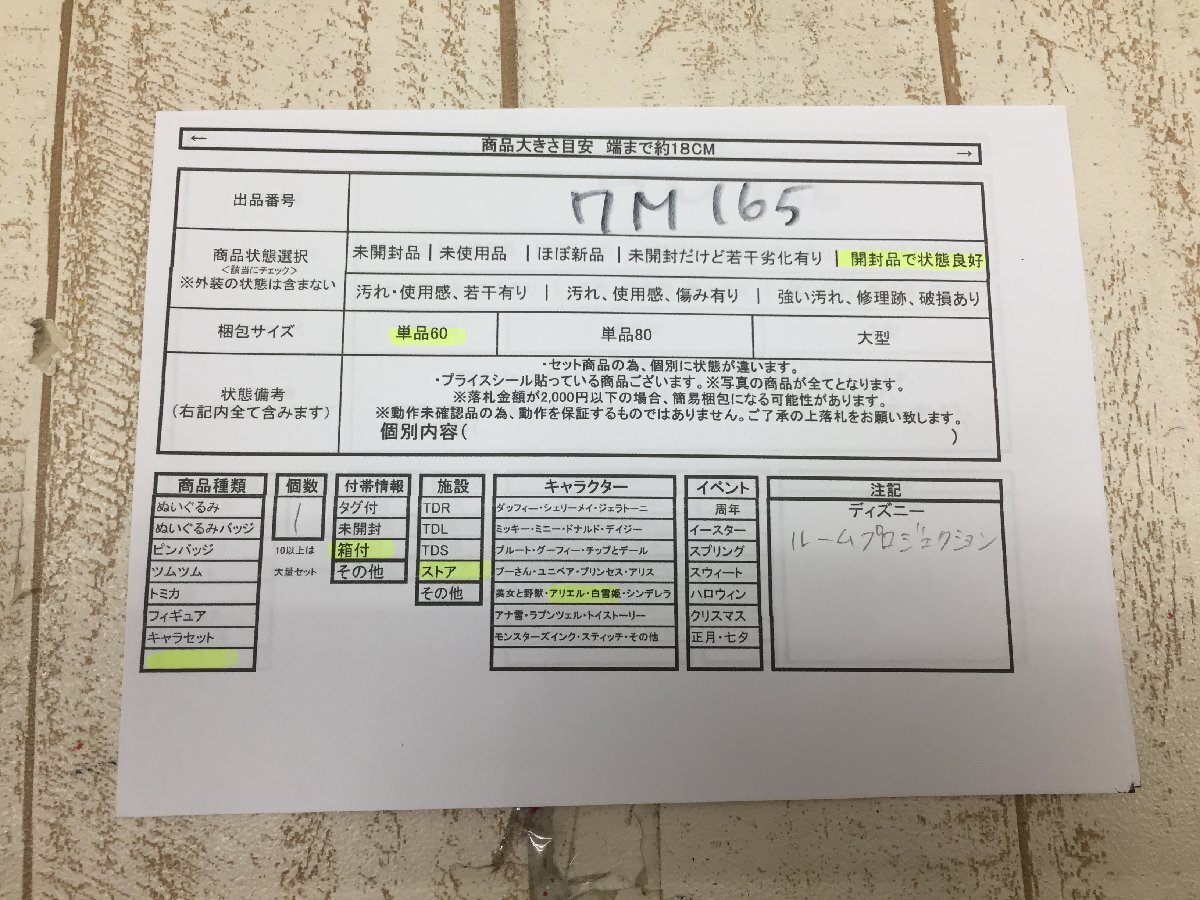 ← 商品大きさ目安 端まで約18CM →
出品番号 7M165
商品状態選択
<該当にチェック>
※外装の状態は含まない
未開封品 | 未使用品 | ほぼ新品 | 未開封だけど若干劣化有り | 開封品で状態良好
汚れ・使用感、若干有り | 汚れ、使用感、傷み有り | 強い汚れ、修理跡、破損あり
梱包サイズ 単品60 単品80 大型
状態備考
(右記内全て含みます)
・セット商品の為、個別に状態が違います。
・プライスシール貼っている商品ございます。※写真の商品が全てとなります。
※落札金額が2,000円以下の場合、簡易梱包になる可能性があります。
※動作未確認品の為、動作を保証するものではありません。ご了承の上落札をお願い致します。
個別内容( )
商品種類
ぬいぐるみ
ぬいぐるみバッジ
ピンバッジ
ツムツム
トミカ
フィギュア
キャラセット
個数
1
10以上は
大量セット
付帯情報
タグ付
未開封
箱付
その他
施設
TDR
TDL
TDS
ストア
その他
キャラクター
ダッフィー・シェリーメイ・ジェラトーニ
ミッキー・ミニー・ドナルド・デイジー
プルート・グーフィー・チップとデール
プーさん・ユニベア・プリンセス・アリス
美女と野獣・アリエル・白雪姫・シンデレラ
アナ雪・ラプンツェル・トイストーリー
モンスターズインク・スティッチ・その他
イベント
周年
イースター
スプリング
スウィート
ハロウィン
クリスマス
正月・七夕
注記
ディズニー
ルームプロジェクション